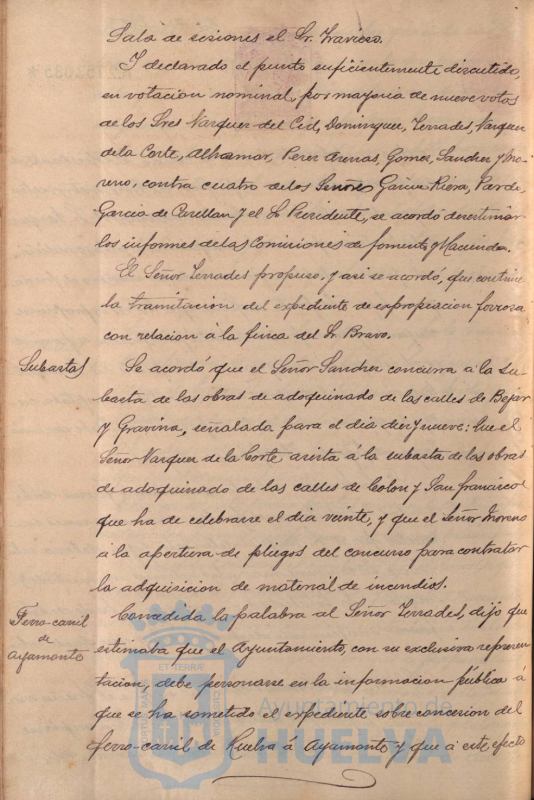 Sala de sesiones el Sr. Travieso.
Y declarado el punto suficientemente discutido,
en votacion nominal, por mayoria de nueve votos
de los Sres Vazquez del Cid, Dominguez, Terrades, Vazquez
de la Corte, Alhamar, Perez Arenas, Gomez, Sanchez y Mo-
reno, contra cuatro de los Señores Garcia Riera, Pardo,
Garcia de Castellan y el Sr Presidente, se acordó desestimar
los informes de las Comisiones de fomento y Hacienda.
El Señor Terrades propuso, y asi se acordó, que continue
la tramitacion del expediente de expropiacion forzosa
con relacion á la finca del Sr Bravo.
Subastas
Se acordó que el Señor Sanchez concurra a la su-
basta de las obras de adoquinado de las calles de Bejar
y Gravina, señalada para el dia diez y nueve: que el
Señor Vazquez de la Corte asista á la subasta de las obras
de adoquinado de las calles de Colon y San francisco
que ha de celebrarse el dia veinte, y que el Señor Moreno
á la apertura de pliegos del concurso para contratar
la adquisicion de material de incendios.
Ferro-carril
de
Ayamonte
Concedida la palabra al Señor Terrades, dijo que
estimaba que el Ayuntamiento, con su exclusiva represen-
tacion, debe personarse en la informacion pública á
que se ha sometido el expediente sobre concesion del
ferro-carril de Huelva á Ayamonte y que á este efecto
Ayuntamiento de
HUELVA